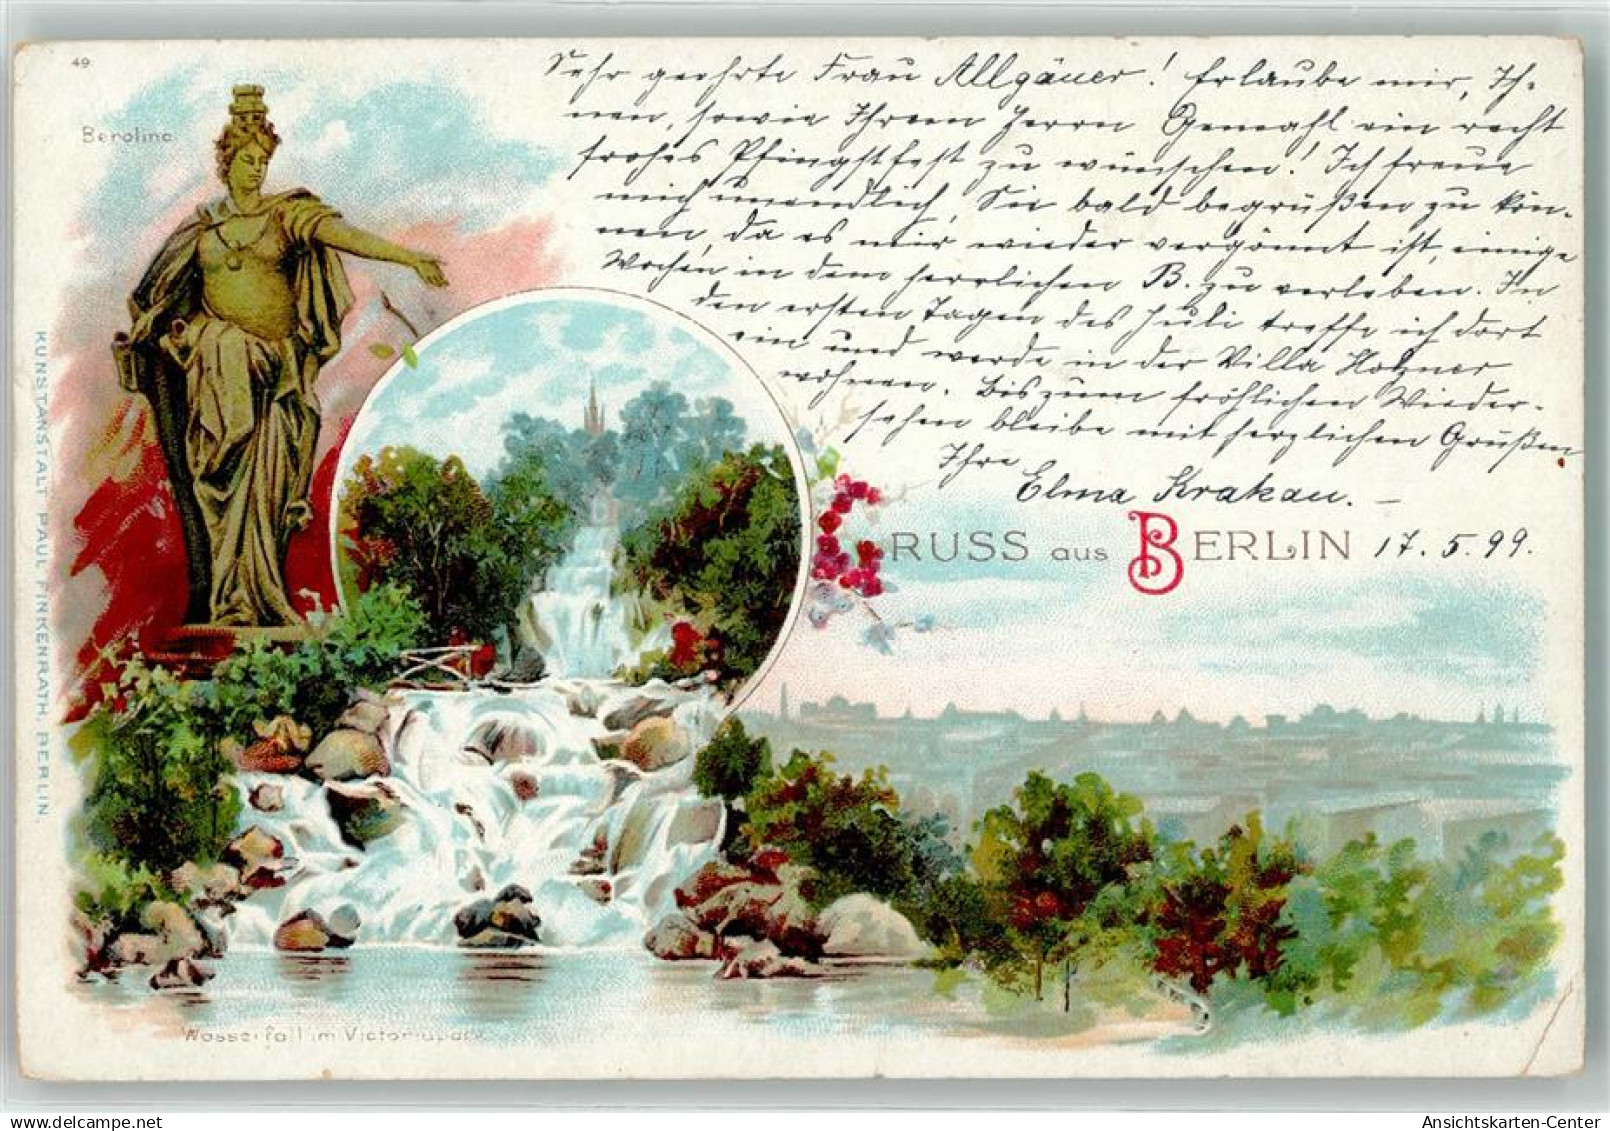 49
Berolina
Sehr geehrte Frau Allgäuer! Erlaube mir, Ih-
nen, sowie Ihrem Herrn Gemahl ein recht
frohes Pfingstfest zu wünschen! Ich freue
mich unendlich, Sie bald begrüßen zu kön-
nen, da es mir wieder vergönnt ist, einige
Wochen in dem herrlichen B. zu verleben. In
den ersten Tagen des Juli treffe ich dort
ein und werde in der Villa Holzner
wohnen. Bis zum fröhlichen Wieder-
sehen bleibe mit herzlichen Grüßen
Ihre
Elma Krakau. –
GRUSS aus BERLIN 17.5.99.
KUNSTANSTALT PAUL FINKENRATH, BERLIN.
Wasserfall im Victoriapark
Ansichtskarten-Center